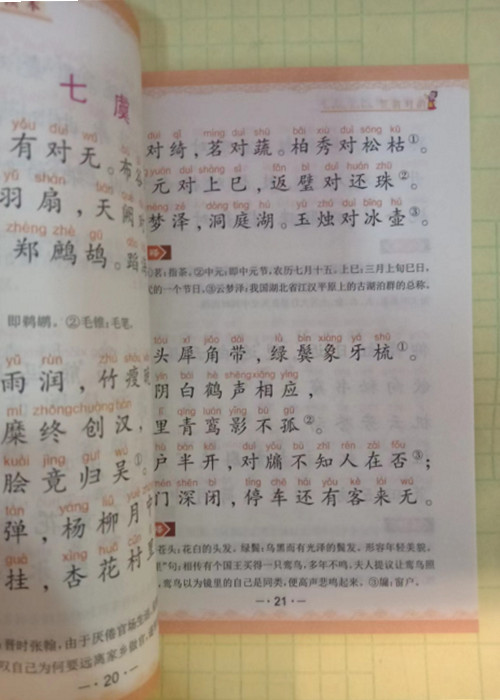 七虞
yǒu duì wú
有对无。布
yǔ shàn
羽扇，天
zhèng zhè gū
郑鹧鸪。蹈
即鹈鹕。②毛锥：毛笔。
yǔ rùn
雨润，竹瘦
mí zhōng chuàng hàn
糜终创汉，
kuài jìng guī wú
脍竟归吴①。
弹，杨柳月中
guà xìng huā cūn
挂，杏花村里
晋时张翰，由于厌倦官场生活，
叹自己为何要远离家乡做官，
—·20·—
duì qǐ míng duì shū bǎi xiù duì sōng kū
对绮，茗对蔬。柏秀对松枯①。
yuán duì shàng sì fǎn bì duì huán zhū
元对上巳，返璧对还珠②。
mèng zé dòng tíng hú yù zhú duì bīng hú
梦泽，洞庭湖。玉烛对冰壶③。
①茗：指茶。②中元：即中元节，农历七月十五。上巳：三月上旬巳日，
的一个节日。③云梦泽：我国湖北省江汉平原上的古湖泊群的总称。
tóu xī jiǎo dài lǜ bìn xiàng yá shū
头犀角带，绿鬓象牙梳①。
yīn bái hè shēng xiāng yìng
阴白鹤声相应，
lǐ qīng luán yǐng bù gū
里青鸾影不孤②。
hù bàn kāi duì yǒu bù zhī rén zài fǒu
户半开，对牖不知人在否③；
mén shēn bì tíng chē hái yǒu kè lái wú
门深闭，停车还有客来无。
苍头：花白的头发。绿鬓：乌黑而有光泽的鬓发，形容年轻美貌。
”句：相传有个国王买得一只鸾鸟，多年不鸣，夫人提议让鸾鸟照
，鸾鸟以为镜里的自己是同类，便高声悲鸣起来。③牖：窗户。
—·21·—